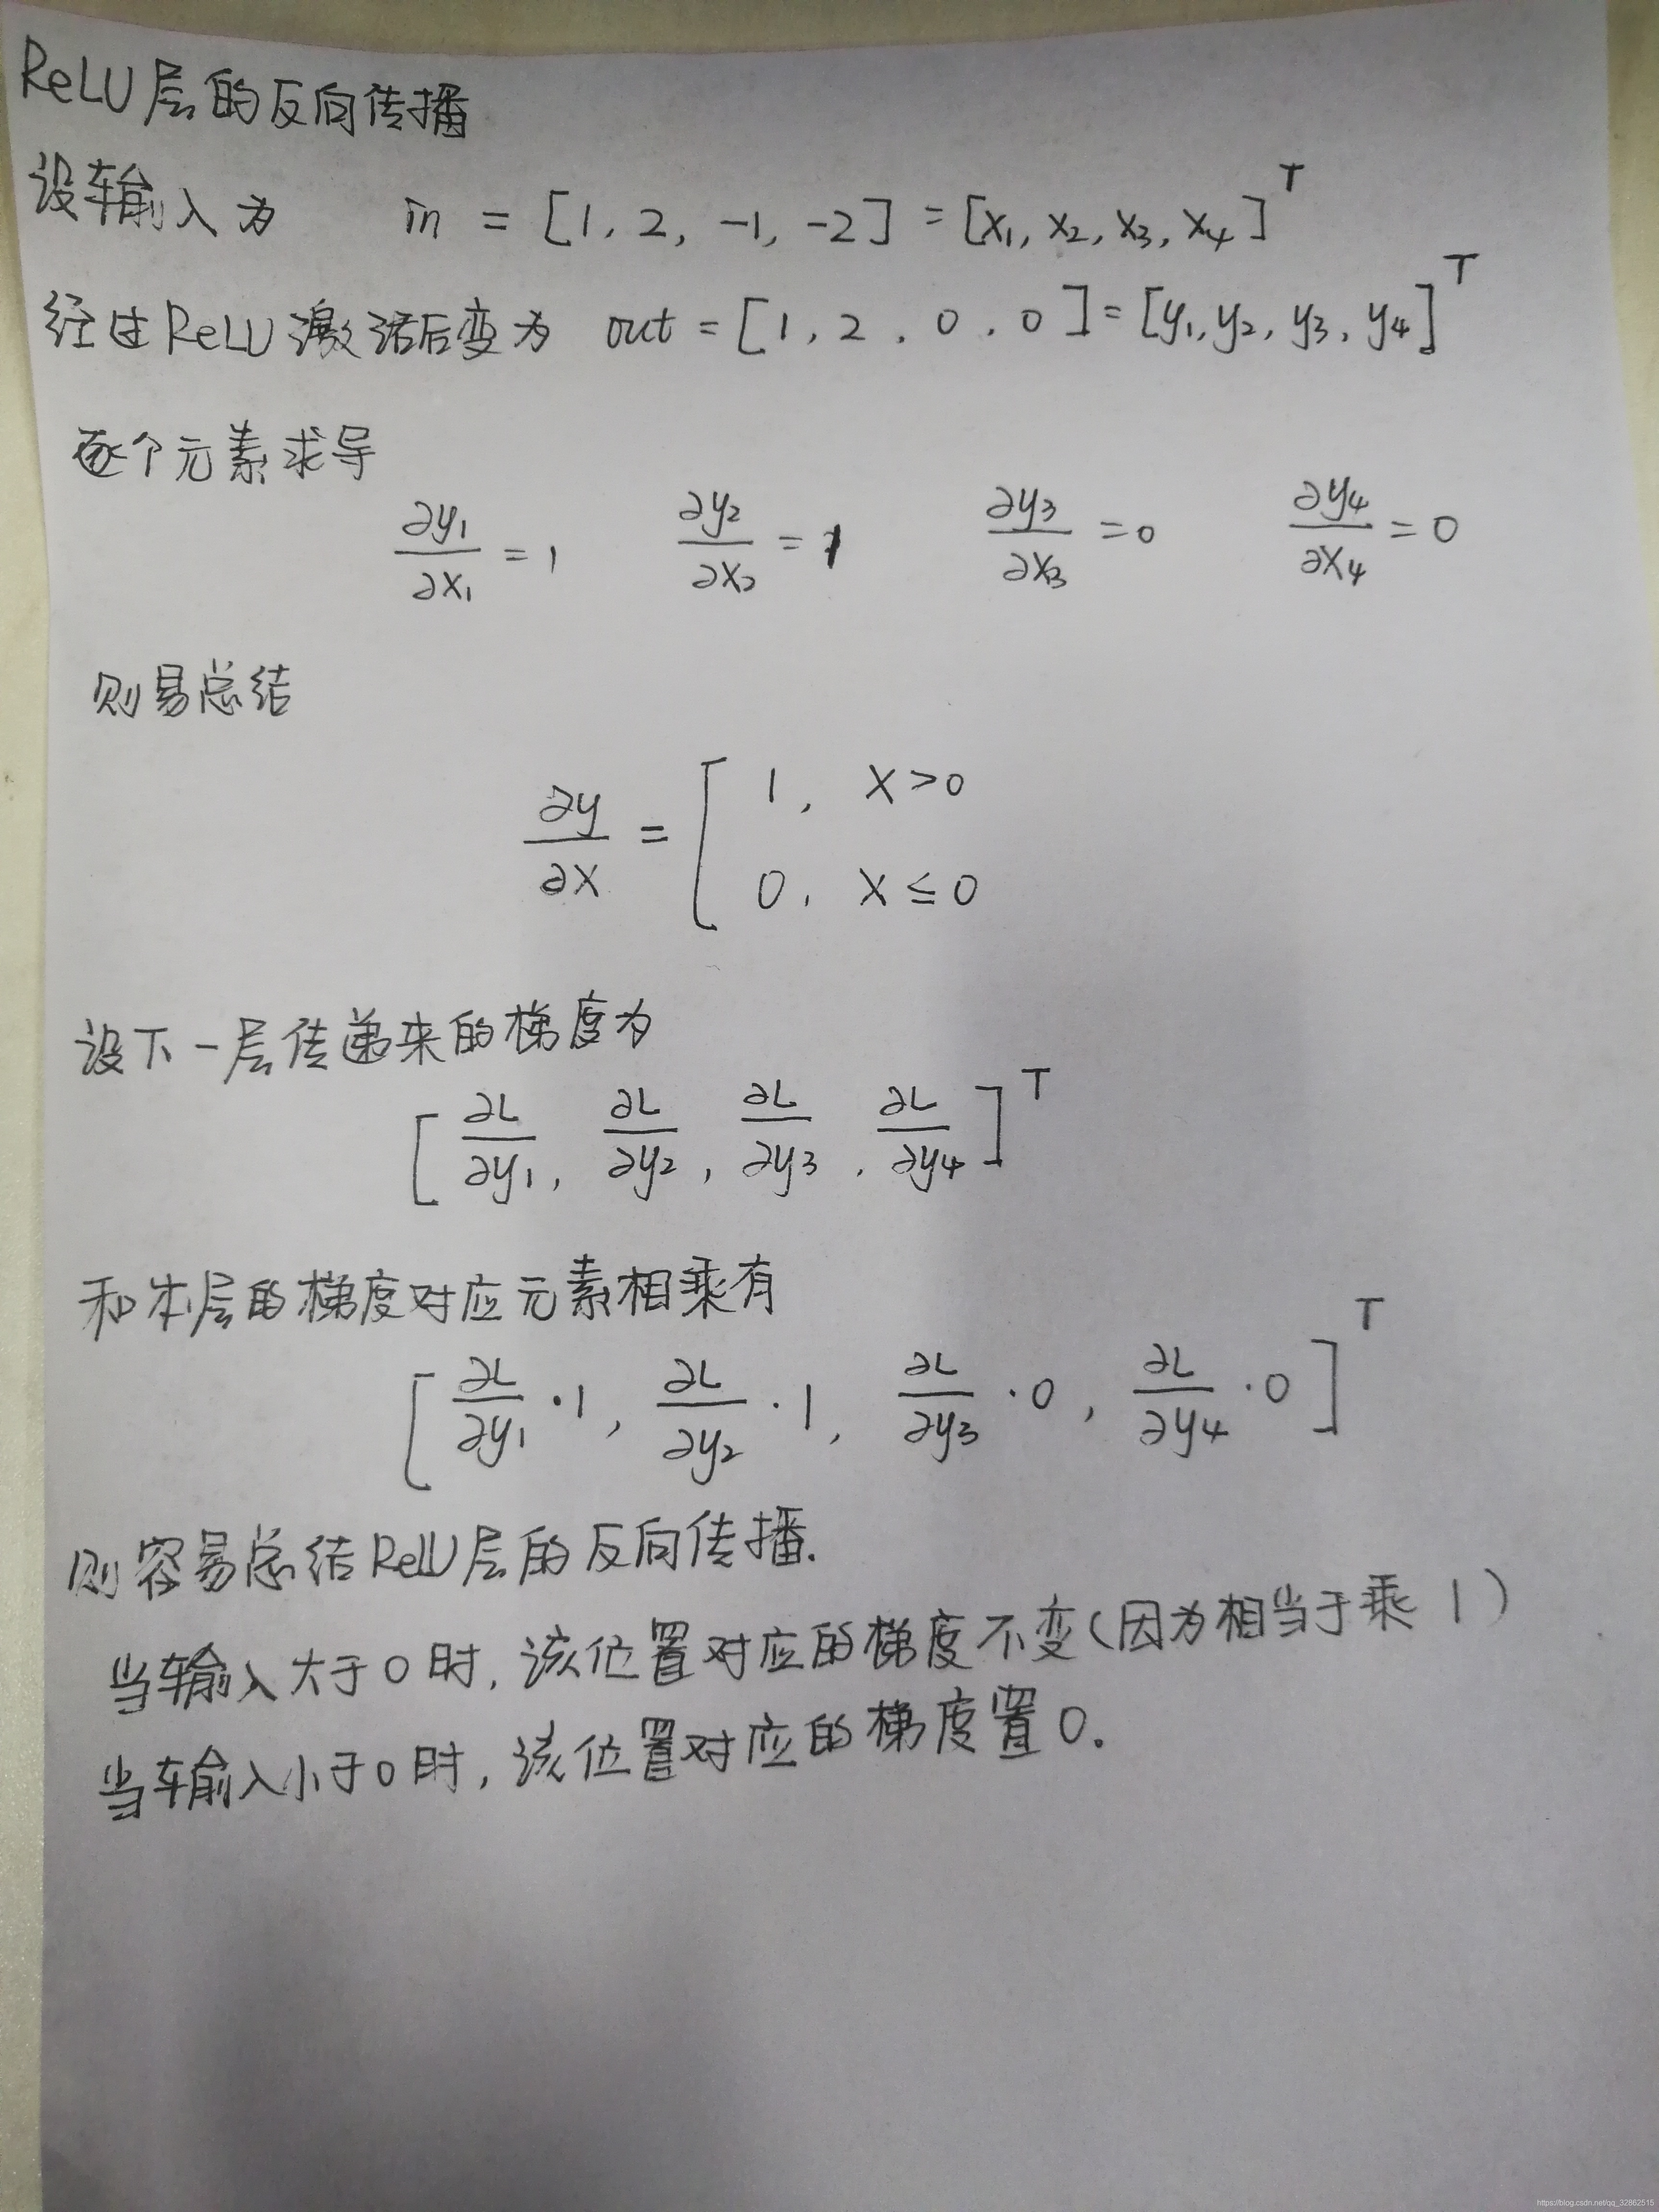 ReLU层的反向传播
设输入为 in = [1, 2, -1, -2] = [x₁, x₂, x₃, x₄]ᵀ
经过ReLU激活后变为 out = [1, 2, 0, 0] = [y₁, y₂, y₃, y₄]ᵀ
逐个元素求导
∂y₁/∂x₁ = 1 ∂y₂/∂x₂ = 1 ∂y₃/∂x₃ = 0 ∂y₄/∂x₄ = 0
则易总结
∂y/∂x = [ 1, x>0
0, x≤0
设下一层传递来的梯度为
[∂L/∂y₁, ∂L/∂y₂, ∂L/∂y₃, ∂L/∂y₄]ᵀ
和本层的梯度对应元素相乘有
[∂L/∂y₁·1, ∂L/∂y₂·1, ∂L/∂y₃·0, ∂L/∂y₄·0]ᵀ
则容易总结ReLU层的反向传播.
当输入大于0时,该位置对应的梯度不变(因为相当于乘1)
当输入小于0时,该位置对应的梯度置0.
https://blog.csdn.net/qq_32862515